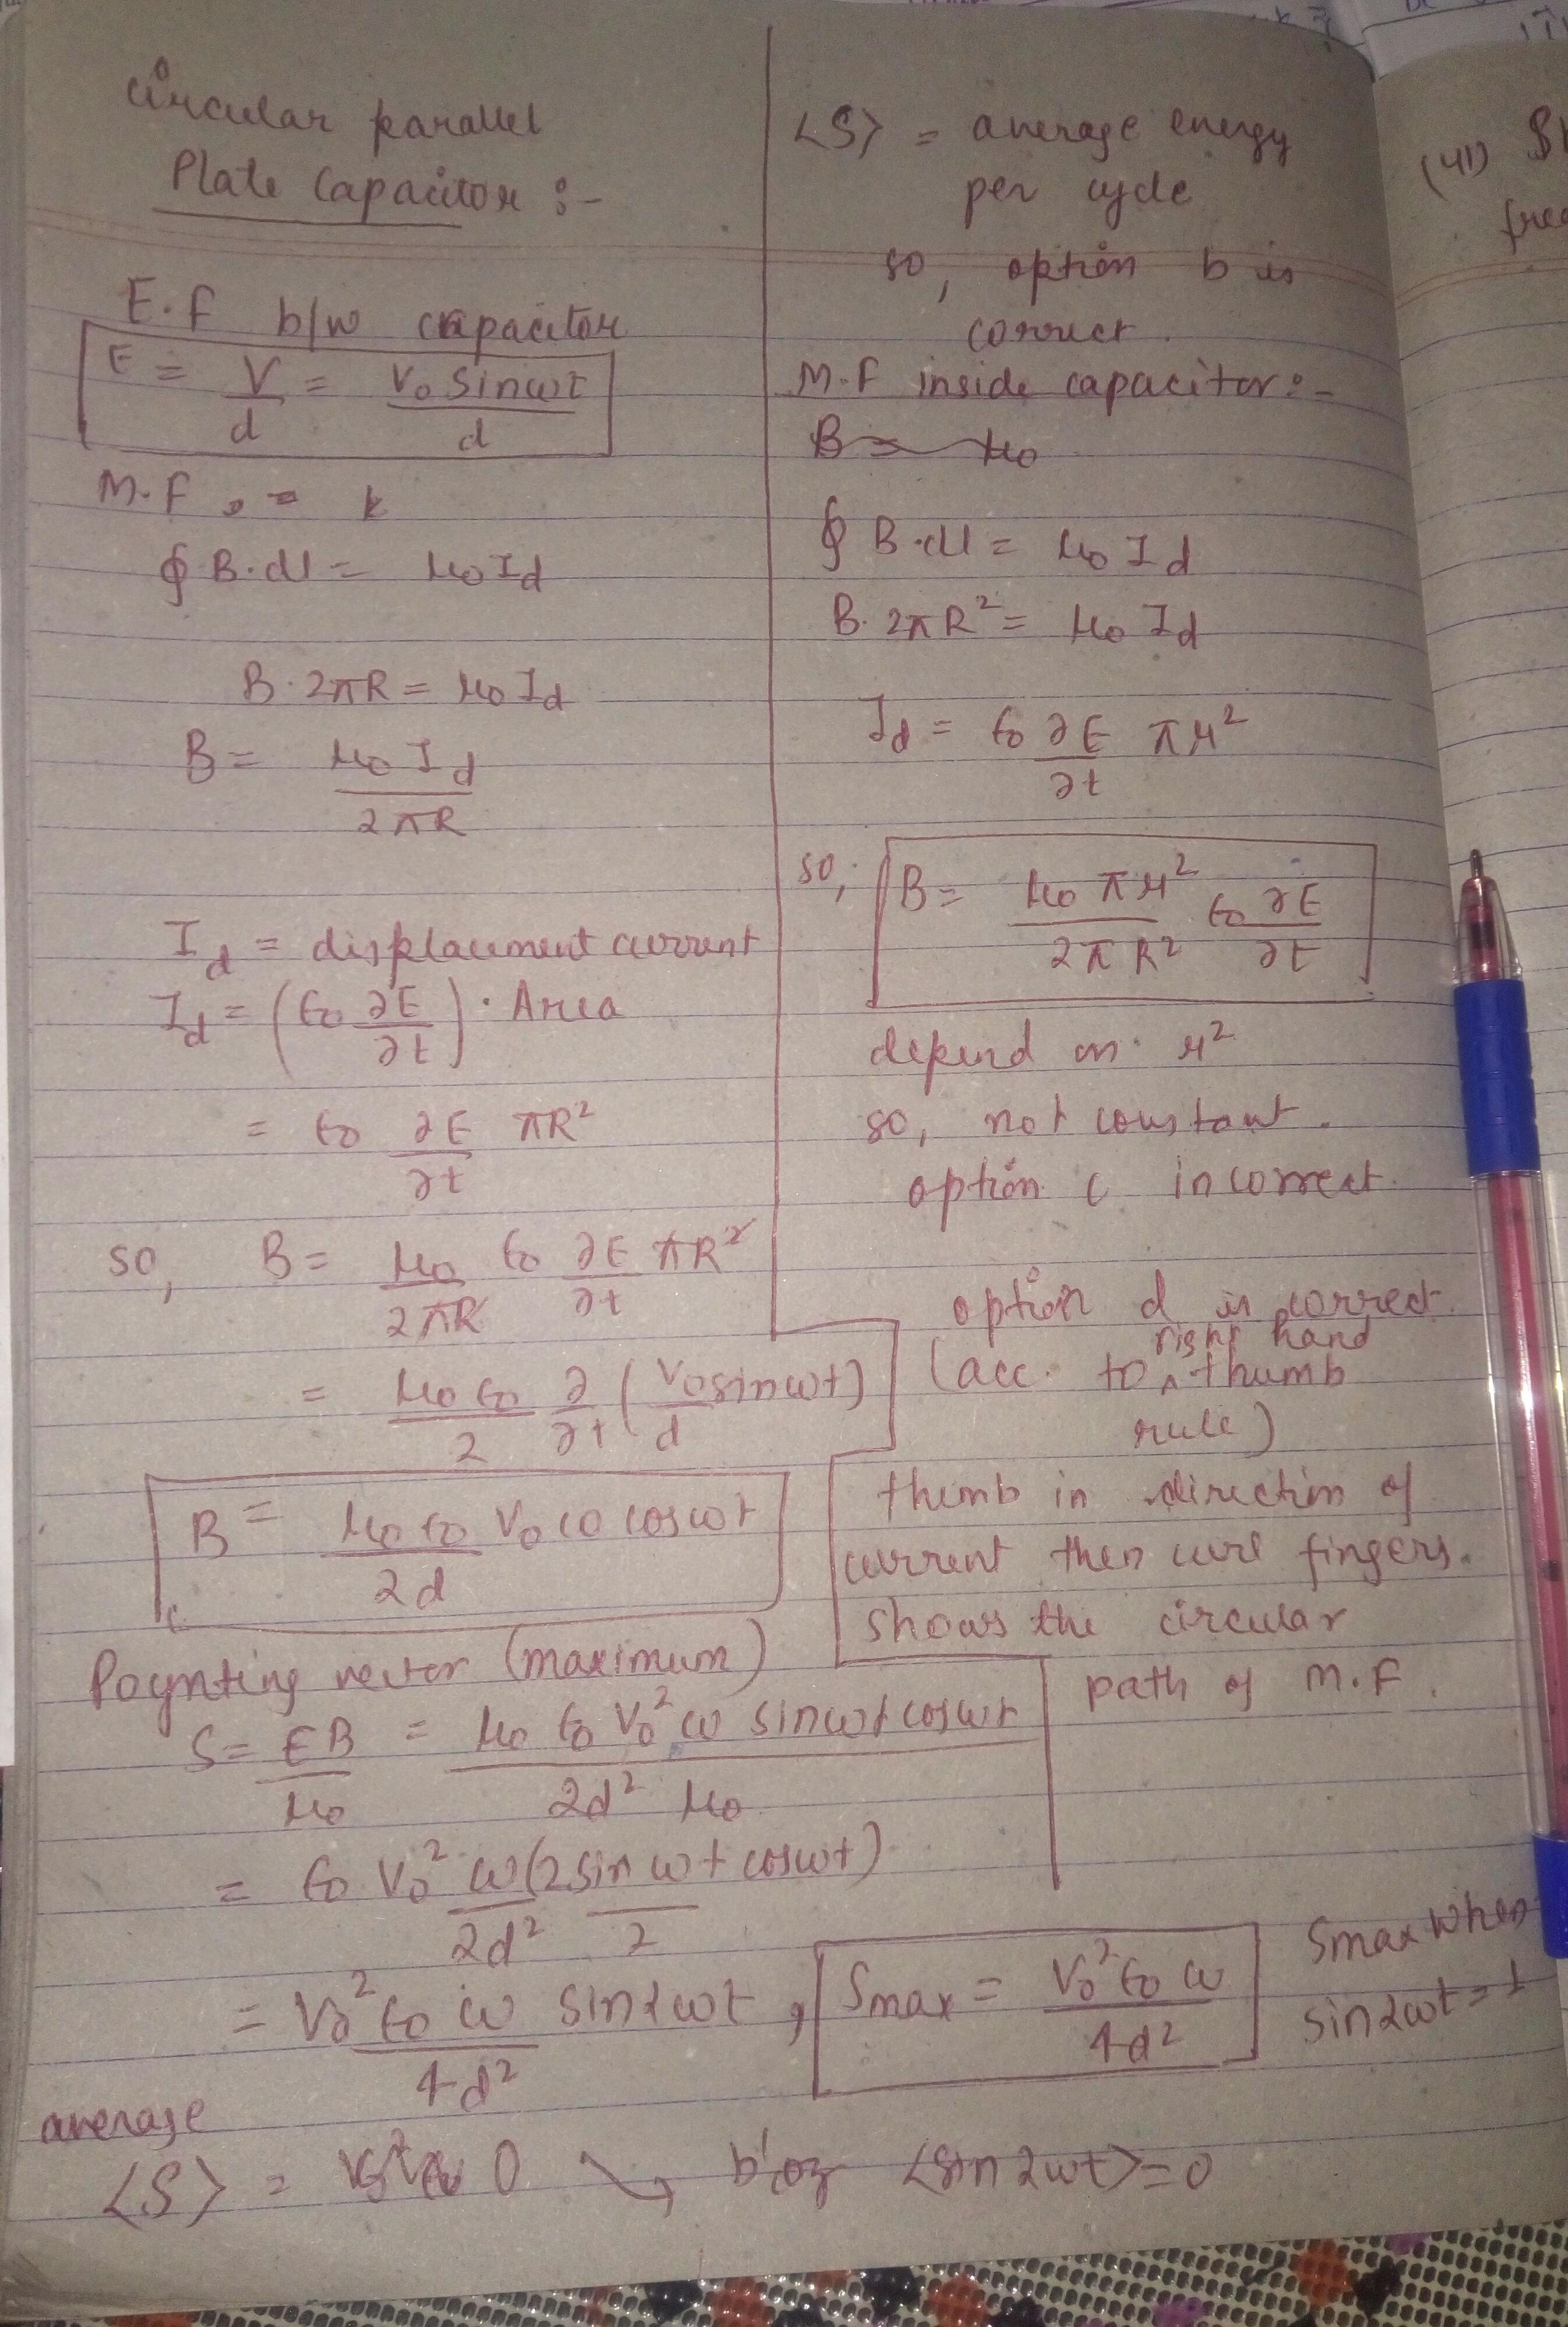 Circular parallel
Plate Capacitor :-
E.F b/w capacitor
E = V/d = V₀ sinωt/d
M.F , = k
∮ B·dl = μ₀ I_d
B·2πR = μ₀ I_d
B = μ₀ I_d / 2πR
I_d = displacement current
I_d = (ϵ₀ ∂E/∂t) · Area
= ϵ₀ ∂E/∂t πR²
so, B = μ₀/2πR ϵ₀ ∂E/∂t πR²
= μ₀ϵ₀/2 ∂/∂t (V₀sinωt/d)
B = μ₀ϵ₀/2d V₀ω cosωt
Poynting vector (maximum)
S = EB/μ₀ = μ₀ ϵ₀ V₀² ω sinωt cosωt / 2d² μ₀
= ϵ₀ V₀² ω/2d² (2sinωt cosωt)/2
= V₀² ϵ₀ ω/4d² sin2ωt , Smax = V₀² ϵ₀ ω/4d²
Smax when
sin2ωt = 1
average
<S> = 0 → b'coz <sin2ωt> = 0
<S> = average energy
per cycle
so, option b is
correct.
M.F inside capacitor :-
B = μ₀
∮ B·dl = μ₀ I_d
B·2πR² = μ₀ I_d
I_d = ϵ₀ ∂E/∂t πr²
so, B = μ₀ πr²/2πR² ϵ₀ ∂E/∂t
depend on r²
so, not constant.
option c incorrect.
option d is correct.
right hand
(acc. to ^ thumb
rule)
thumb in direction of
current then curl fingers.
shows the circular
path of M.F.
(41)